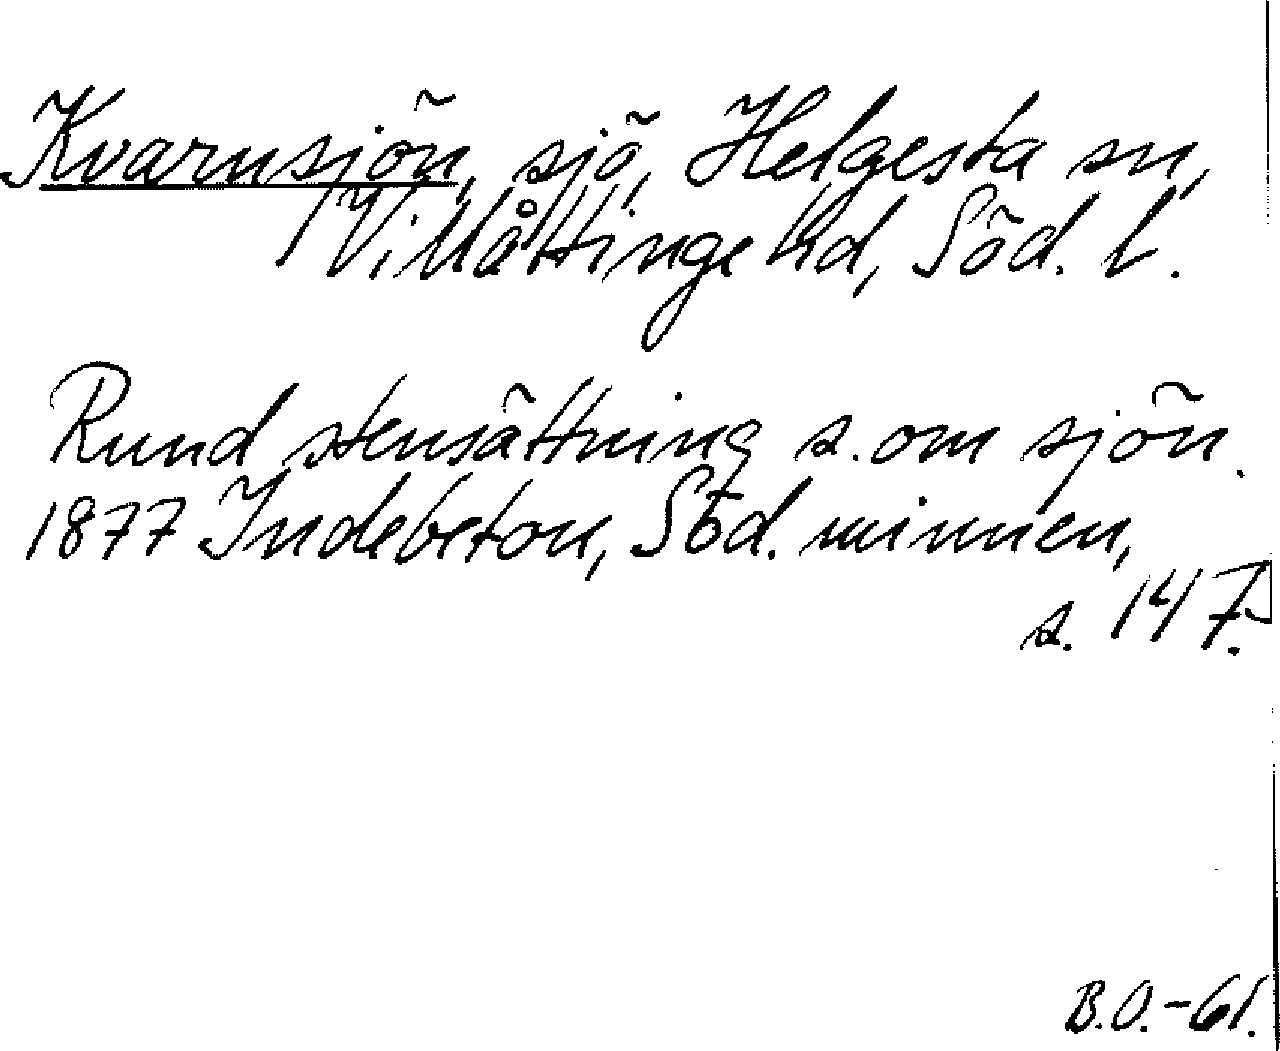 Kvarnsjön, sjö, Helgesta sn,
Villåttinge hd, Söd. l.
Rund stensättning s. om sjön.
1877 Indebetou, Söd. minnen,
s. 147.
B.O.-61.